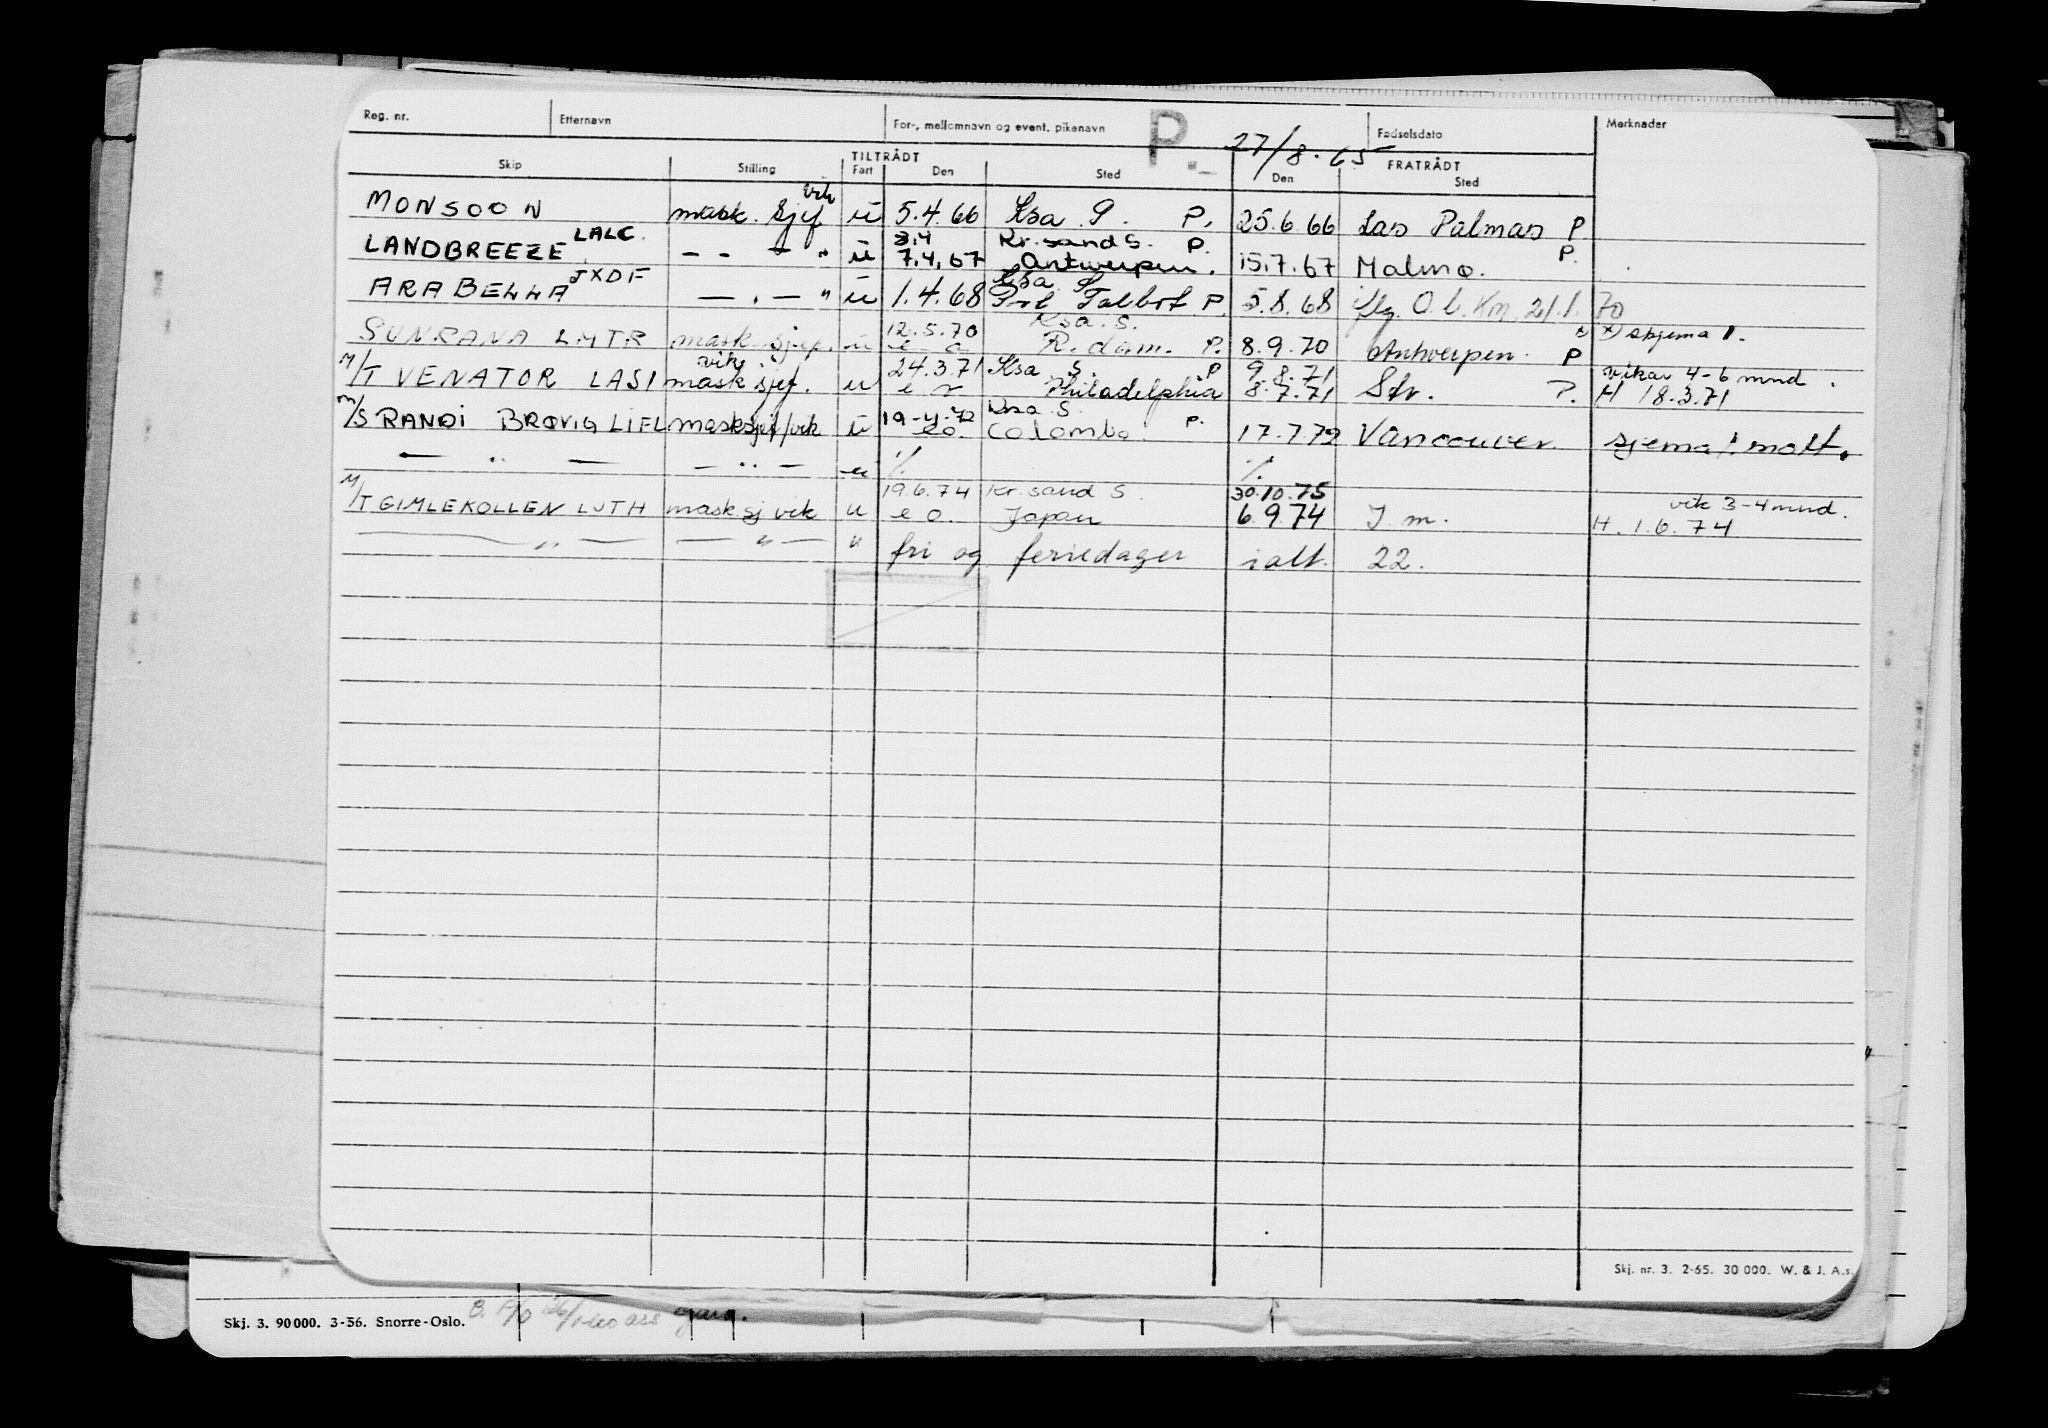 Reg. nr. Etternavn For-, mellomnavn og event. pikenavn P. 27/8.65 Fødselsdato Merknader
Skip Stilling TILTRÅDT Fart Den Sted FRATRÅDT Den Sted
MONSOON mask. sjef vik u 5.4.66 Ksa S. P. 25.6.66 Las Palmas P
LANDBREEZE LALC - - - " u 3.4 Kr.sand S. P.
7.4.67 Antwerpen. 15.7.67 Malmø. P.
ARABELLA JXDF — . — " u 1.4.68 Ksa S. Port Talbot P. 5.8.68 flg. O.b. Km. 21.1.70
SUNRANA LMTR mask. sjef. u 12.5.70 Ksa. S.
e o R.dam. P. 8.9.70 Antwerpen. P x) x) skjema 1.
M/T VENATOR LASI mask sjef. vik. u 24.3.71 Ksa S. P 9.8.71 vikar 4-6 mnd.
e r Philadelphia 8.7.71 Str. P. H 18.3.71
M/S RANDI BRØVIG LIEL masksjef/vik u 19-4-72 Krsa. S.
e o. Colombo. P. 17.7.72 Vancouver. sjema 1 mott.
— " — — " — u ./. ./.
M/T GIMLEKOLLEN LJTH mask sj vik u 19.6.74 Kr.sand S. 30.10.75 vik 3-4 mnd.
e o. Japan 6.9.74 J. m. H. 1.6.74
— " — — " — " fri og feriedager ialt. 22.
Skj. nr. 3. 2-65. 30 000. W. & J. A.s.
Skj. 3. 90000. 3-56. Snorre-Oslo.